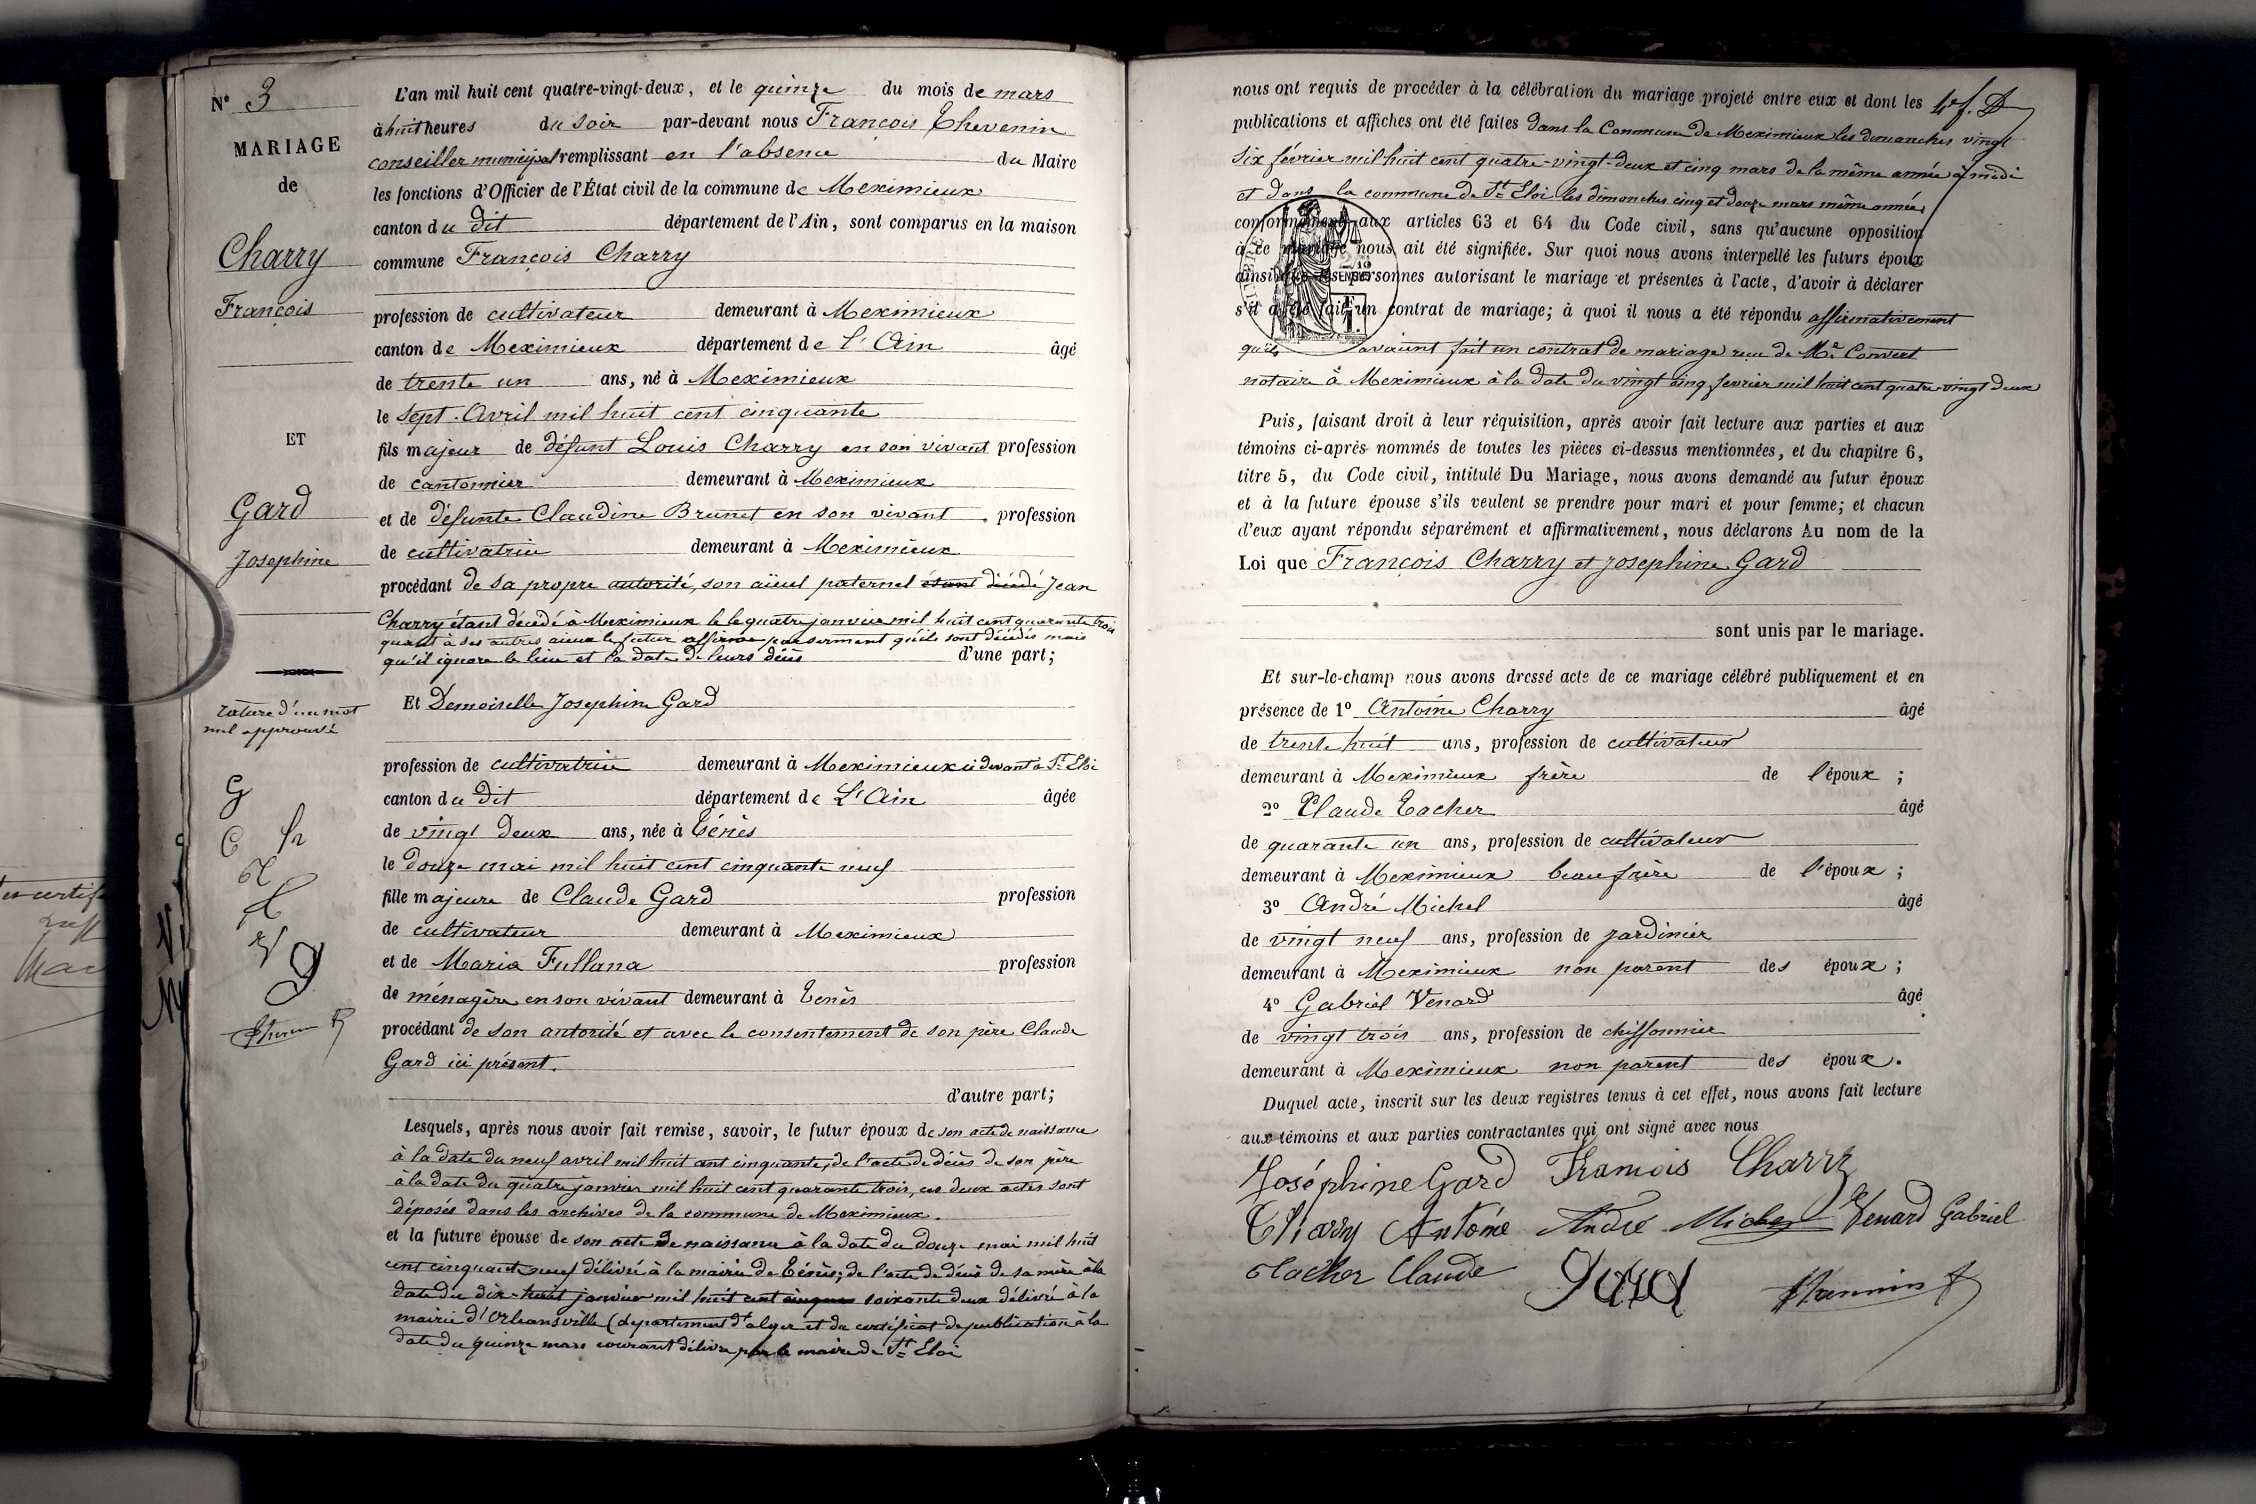 N° 3
MARIAGE
de
Charry
François
ET
Gard
Josephine
rature d'un mot
nul approuvé
L'an mil huit cent quatre-vingt-deux, et le quinze du mois de mars
à huit heures du soir par-devant nous François Thevenin
conseiller municipal remplissant en l'absence du Maire
les fonctions d'Officier de l'État civil de la commune de Meximieux
canton du dit département de l'Ain, sont comparus en la maison
commune François Charry
profession de cultivateur demeurant à Meximieux
canton de Meximieux département de l'Ain âgé
de trente un ans, né à Meximieux
le sept Avril mil huit cent cinquante
fils majeur de défunt Louis Charry en son vivant profession
de cantonnier demeurant à Meximieux
et de défunte Claudine Brunet en son vivant profession
de cultivatrice demeurant à Meximieux
procédant de sa propre autorité, son aïeul paternel étant décédé Jean
Charry étant décédé à Meximieux le le quatre janvier mil huit cent quarante trois
quant à ses autres aieux le futur affirme par serment qu'ils sont décédés mais
qu'il ignore le lieu et la date de leurs décès d'une part;
Et Demoiselle Josephine Gard
profession de cultivatrice demeurant à Meximieux ci devant à St Eloi
canton du dit département de L'Ain âgée
de vingt deux ans, née à Ténès
le douze mai mil huit cent cinquante neuf
fille majeure de Claude Gard profession
de cultivateur demeurant à Meximieux
et de Maria Fullana profession
de ménagère en son vivant demeurant à Tenès
procédant de son autorité et avec le consentement de son père Claude
Gard ici présent.
d'autre part;
Lesquels, après nous avoir fait remise, savoir, le futur époux de son acte de naissance
à la date du neuf avril mil huit cent cinquante, de l'acte de décès de son père
à la date du quatre janvier mil huit cent quarante trois, ces deux actes sont
déposés dans les archives de la commune de Meximieux.
et la future épouse de son acte de naissance à la date du douze mai mil huit
cent cinquante neuf délivré à la mairie de Ténès; de l'acte de décès de sa mère à la
date du dix-huit janvier mil huit cent soixante deux délivré à la
mairie d'Orléansville (département d'alger et du certificat de publication à la
date du quinze mars courant délivré par le maire de St Eloi
nous ont requis de procéder à la célébration du mariage projeté entre eux et dont les
publications et affiches ont été faites dans la Commune de Meximieux les dimanches vingt
six février mil huit cent quatre-vingt-deux et cinq mars de la même année à midi
et dans la commune de St Eloi les dimanches cinq et douze mars même année,
conformément aux articles 63 et 64 du Code civil, sans qu'aucune opposition
à ce mariage nous ait été signifiée. Sur quoi nous avons interpellé les futurs époux
ainsi que les personnes autorisant le mariage et présentes à l'acte, d'avoir à déclarer
s'il a été fait un contrat de mariage; à quoi il nous a été répondu affirmativement
qu'ils avaient fait un contrat de mariage reçu de Me Convert
notaire à Meximieux à la date du vingt cinq fevrier mil huit cent quatre vingt deux
Puis, faisant droit à leur réquisition, après avoir fait lecture aux parties et aux
témoins ci-après nommés de toutes les pièces ci-dessus mentionnées, et du chapitre 6,
titre 5, du Code civil, intitulé Du Mariage, nous avons demandé au futur époux
et à la future épouse s'ils veulent se prendre pour mari et pour femme; et chacun
d'eux ayant répondu séparément et affirmativement, nous déclarons Au nom de la
Loi que François Charry et Josephine Gard
sont unis par le mariage.
Et sur-le-champ nous avons dressé acte de ce mariage célébré publiquement et en
présence de 1° Antoine Charry âgé
de trente huit ans, profession de cultivateur
demeurant à Meximieux frère de l'époux;
2° Claude Tacher âgé
de quarante un ans, profession de cultivateur
demeurant à Meximieux beau frère de l'époux;
3° André Michel âgé
de vingt neuf ans, profession de jardinier
demeurant à Meximieux non parent des époux;
4° Gabriel Venard âgé
de vingt trois ans, profession de chiffonnier
demeurant à Meximieux non parent des époux.
Duquel acte, inscrit sur les deux registres tenus à cet effet, nous avons fait lecture
aux témoins et aux parties contractantes qui ont signé avec nous
Joséphine Gard François Charry
Charry Antoine André Michel Venard Gabriel
Tacher Claude Gard Thevenin